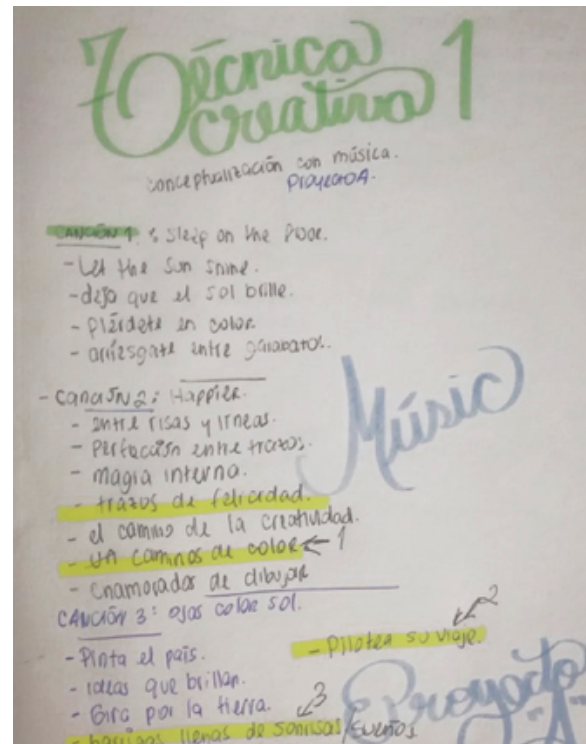 Técnica 1
creativa
conceptualización con música.
Proyecto A.
CANCIÓN 1: Sleep on the floor.
- Let the sun shine.
- deja que el sol brille.
- Piérdete en color
- arriésgate entre garabatos.
- canción 2: Happier.
- entre risas y líneas.
- Perfección entre trazos.
- magia interna.
- trazos de felicidad.
- el camino de la creatividad.
- un caminos de color ← 1
- Enamorados de dibujar
CANCIÓN 3: ojos color sol.
2
- Pinta el país.
- Piloten su viaje.
- ideas que brillan.
- Gira por la tierra.
3
- barrigas llenas de sonrisas/sueños.
Músic
Proyecto
-A-